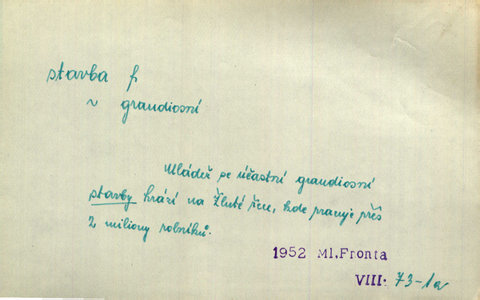 stavba f
v grandiosní
Mládež se účastní grandiosní
stavby hrází na Žluté řece, kde pracuje přes
2 miliony rolníků.
1952 Ml.Fronta
VIII. 73-1a